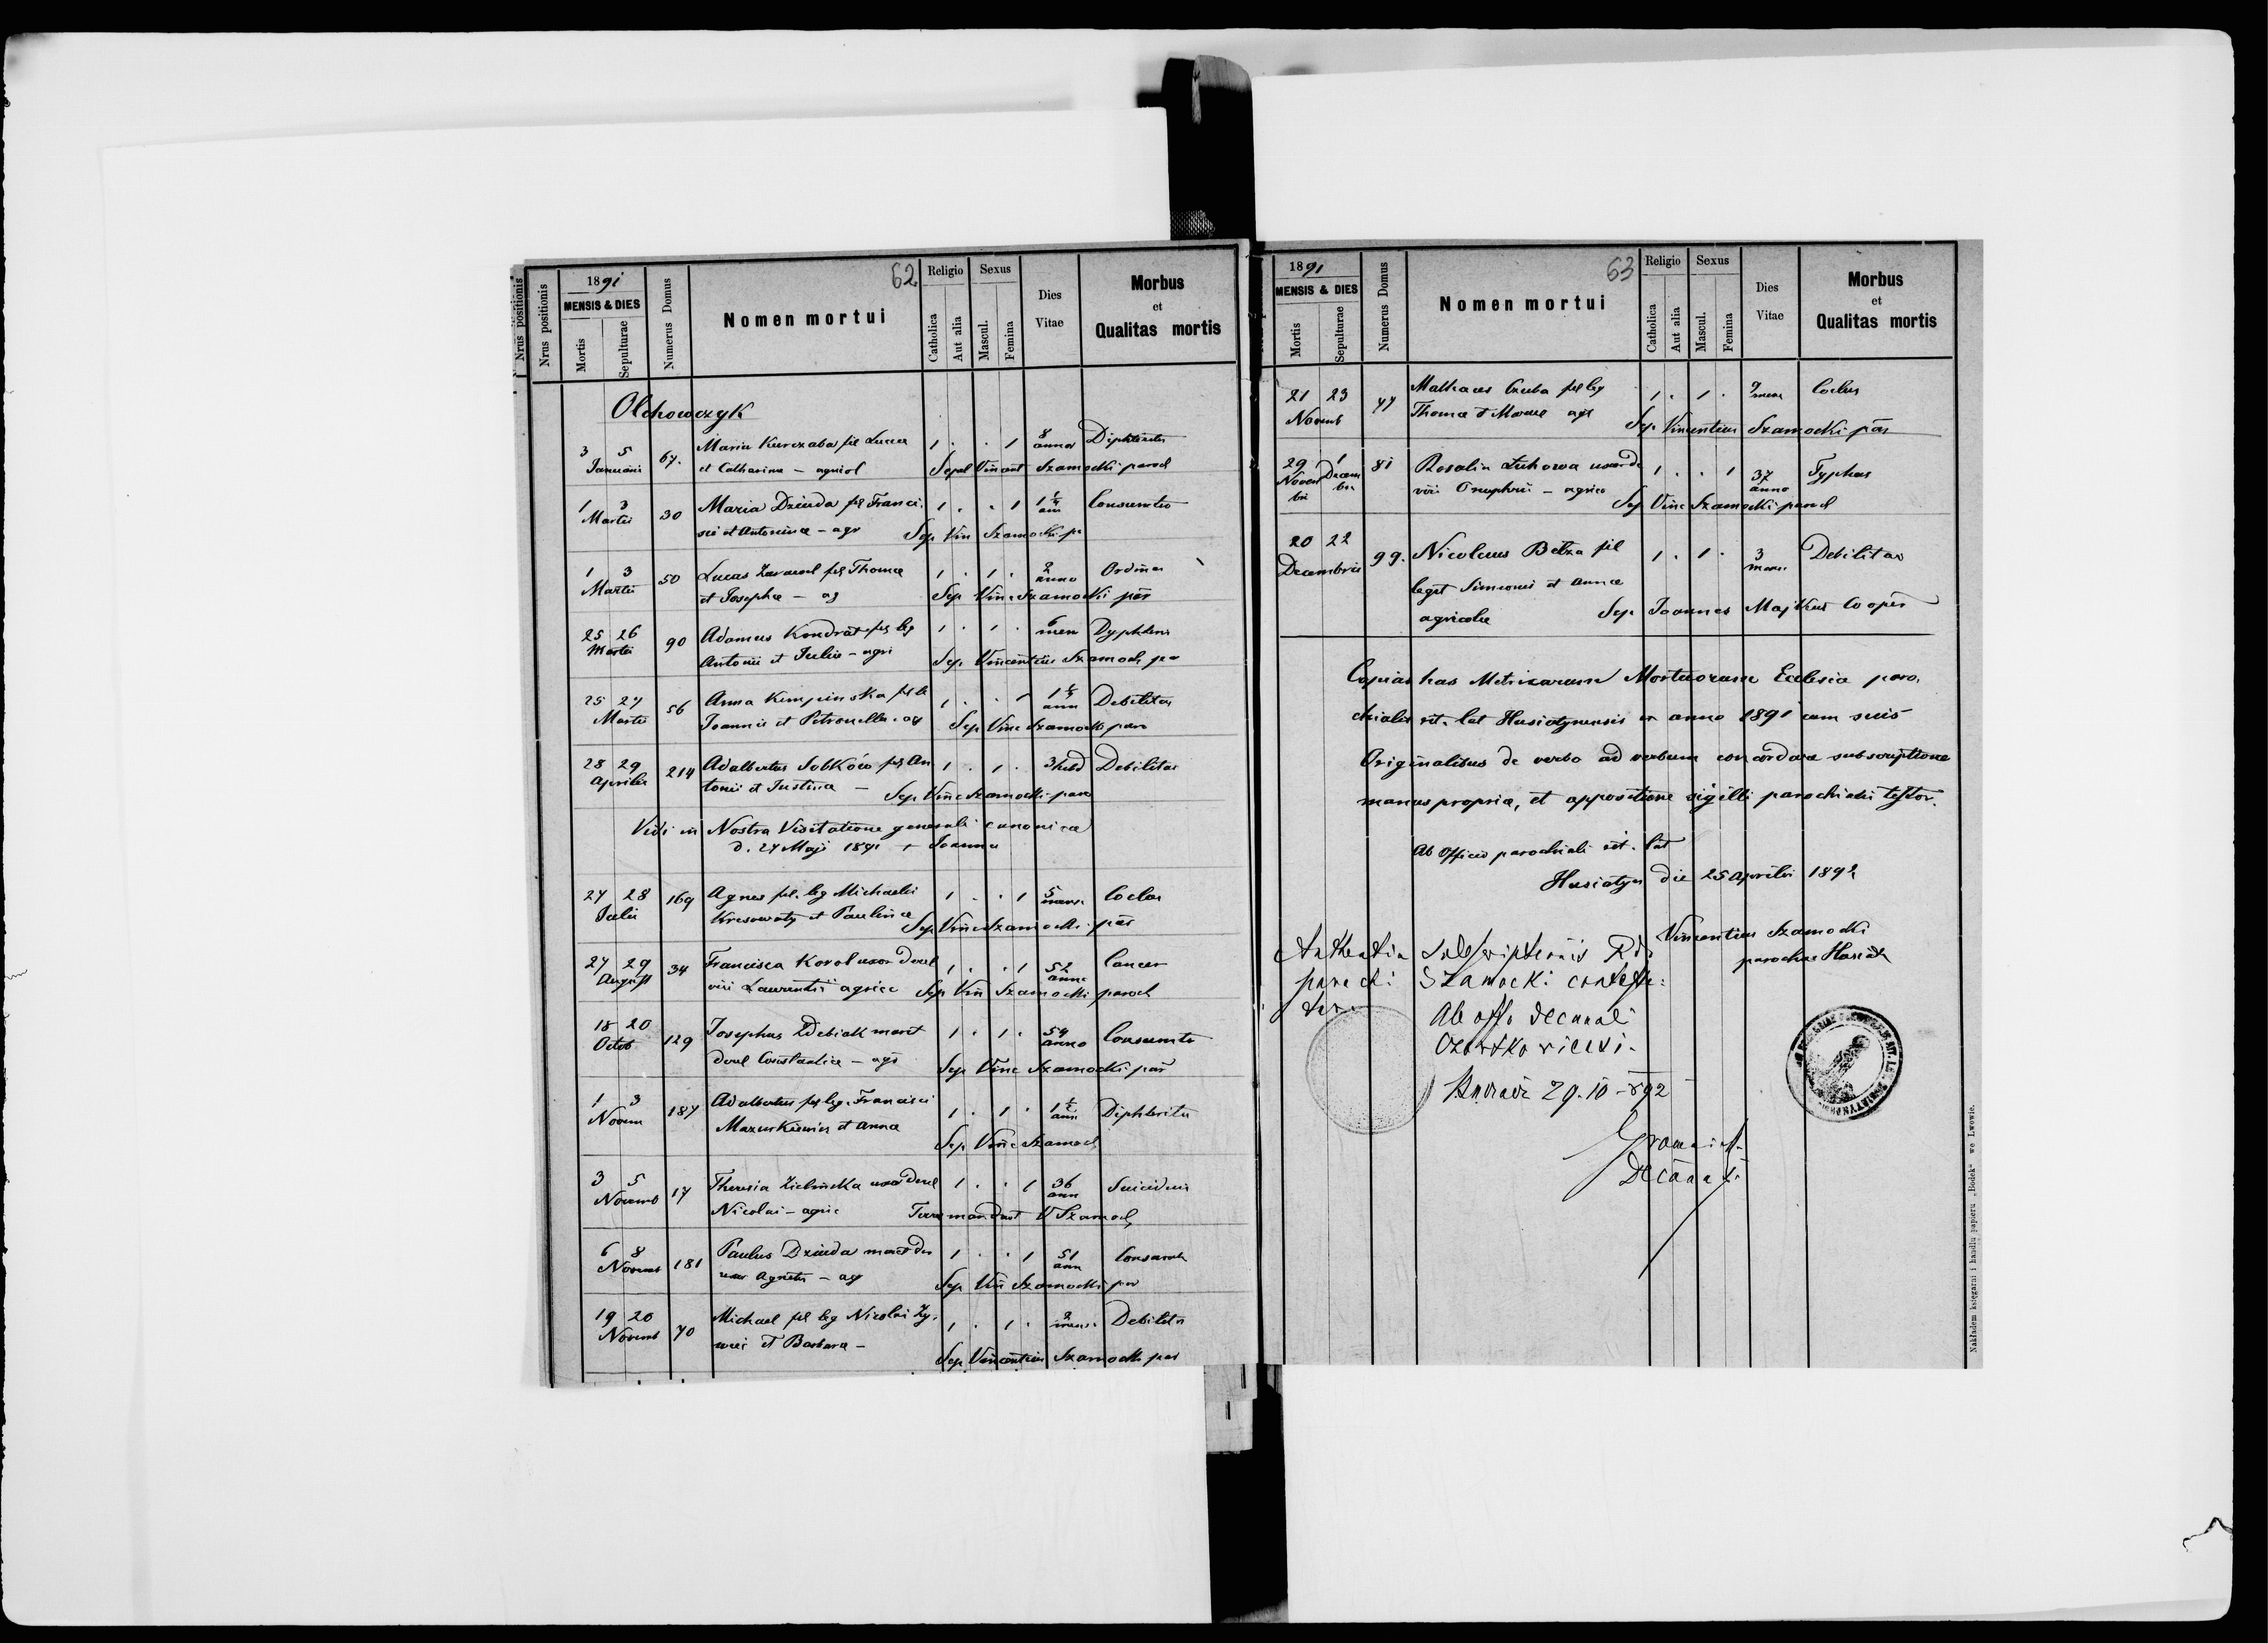 Nrus positionis
Nrus positionis
1891
MENSIS & DIES
Mortis
Sepulturae
Numerus Domus
Nomen mortui
62
Religio
Catholica
Aut alia
Sexus
Mascul.
Femina
Dies
Vitae
Morbus
et
Qualitas mortis
Olchowczyk
3 5 67. Maria Kurczaba fil Lucae 1 . . 1 8
Januarii et Catharina — agricol anno
Sepel Vincent Szamocki paroch
1 3 30 Maria Dziuda fil Franci. 1 . . 1 1 1/4
Martii sci et Antonina — agr ann
Sep Vin Szamocki pa
1 3 50 Lucas fil Thomae 1 . 1 . 2 Ordina
Martii et Josepha — ag anno
Sep Vinc Szamocki par
25 26 90 Adamus Kondrat fil leg 1 . 1 . 6 Dyphteri
Martii Antonii et Julia — agri men
Sep Vincentius Szamock pa
25 27 56 Anna Kempinska fil le 1 . . 1 Debilitas
Martii Joannis et Petronella - ag ann
Sep Vinc Szamocki paro
28 29 214 Adalbertus Sobków fil An 1 . 1 . 3 hebd Debilitas
Aprilis tonii et Justina —
Sep Vinc Szamocki paro
Vidi in Nostra Visitatione generali canonica
d. 27 Maji 1891 + Joannes
27 28 169 Agnes fil. leg Michaelis 1 . . 1 5
Julii Kresowaty et Paulina mens.
Sep Vinc Szamocki par
27 29 34 Francisca Korol uxor derel 1 . . 1 52 Cancer
August viri Laurentii agricc anno
Sep Vin Szamocki paroch
18 20 129 Josephus Zdebiak marit 1 . 1 . 54
Octob derel Constantia — agr anno
Sep Vinc Szamocki par
1 3 187 Adalbertus fil leg. Francisci 1 . 1 . 1 1/2 Diphteritis
Novem Mazurkiewicz et Anna ann
Sep Vinc Szamock
3 5 17 Theresia Zielinska uxor derel 1 . . 1 36 Suicidium
Novemb Nicolai — agric ann
Terrae mandavit V Szamock
6 8 181 Paulus Dziuda marit de 1 . . 1 51
Novemb Agnetis — ag ann
Sep Vin Szamocki par
19 20 70 Michael fil leg Nicolai 1 . 1 . 2 Debilita
Novemb et Barbara — mens.
Sep Vincentius Szamocki par
1891
MENSIS & DIES
Mortis
Sepulturae
Numerus Domus
Nomen mortui
63
Religio
Catholica
Aut alia
Sexus
Mascul.
Femina
Dies
Vitae
Morbus
et
Qualitas mortis
21 23 77 fil leg 1 . 1 .
Novemb Thomae et Mariae agr
Sep Vincentius Szamocki par
29 1 81 Rosalia uxor de 1 . . 1 37 Typhus
Novem Decem viri Onuphrii — agrico anno
bri bri
Sep Vinc Szamocki paroch
20 22 99. Nicolaus Belza fil 1 . 1 . 3 Debilitas
Decembris legit Simeonis et Annae mens
agricolae Sep Joannes Majkut Cooper
Copias has Metricarum Mortuorum Ecclesia paro.
chialis rit. lat Husiatynensis ex anno 1891 cum suis
Originalibus de verbo ad verbum concordare subscriptione
manus propria, et appositione sigilli parochialis testor.
Ab Officio parochiali rit. lat
Husiatyn die 25 Aprilis 1892
Vincentius Szamocki
parochus Husiat
Szamocki
Ab offo decanali
29.10 892
Nakładem księgarni i handlu papieru „Bodek“ we Lwowie.